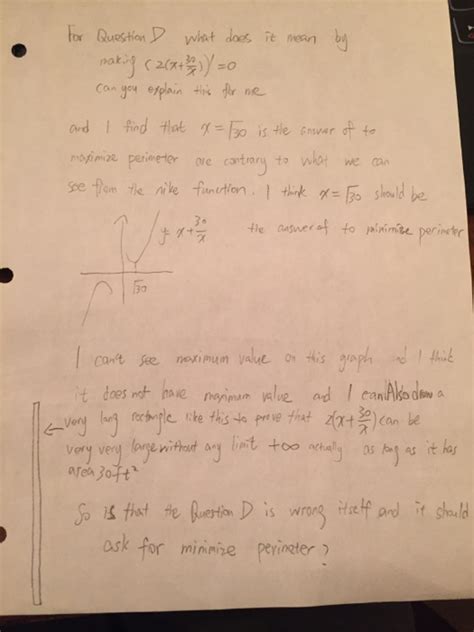 For Question D what does it mean by
making (2(x+30/x))'=0
can you explain this for me
and I find that x=√30 is the answer of to
maximize perimeter are contrary to what we can
see from the nike function. I think x=√30 should be
y= x+30/x the answer of to minimize perimeter
√30
I can't see maximum value on this graph and I think
it does not have maximum value and I can Also draw a
very long rectangle like this to prove that 2(x+30/x) can be
very very large without any limit +∞ actually as long as it has
area 30ft²
So is that the Question D is wrong itself and it should
ask for minimize perimeter?